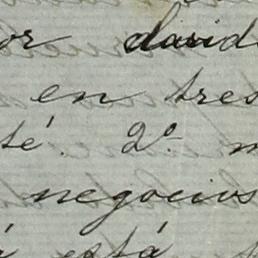 or david
en tres
té. 2º m
negocios
á está